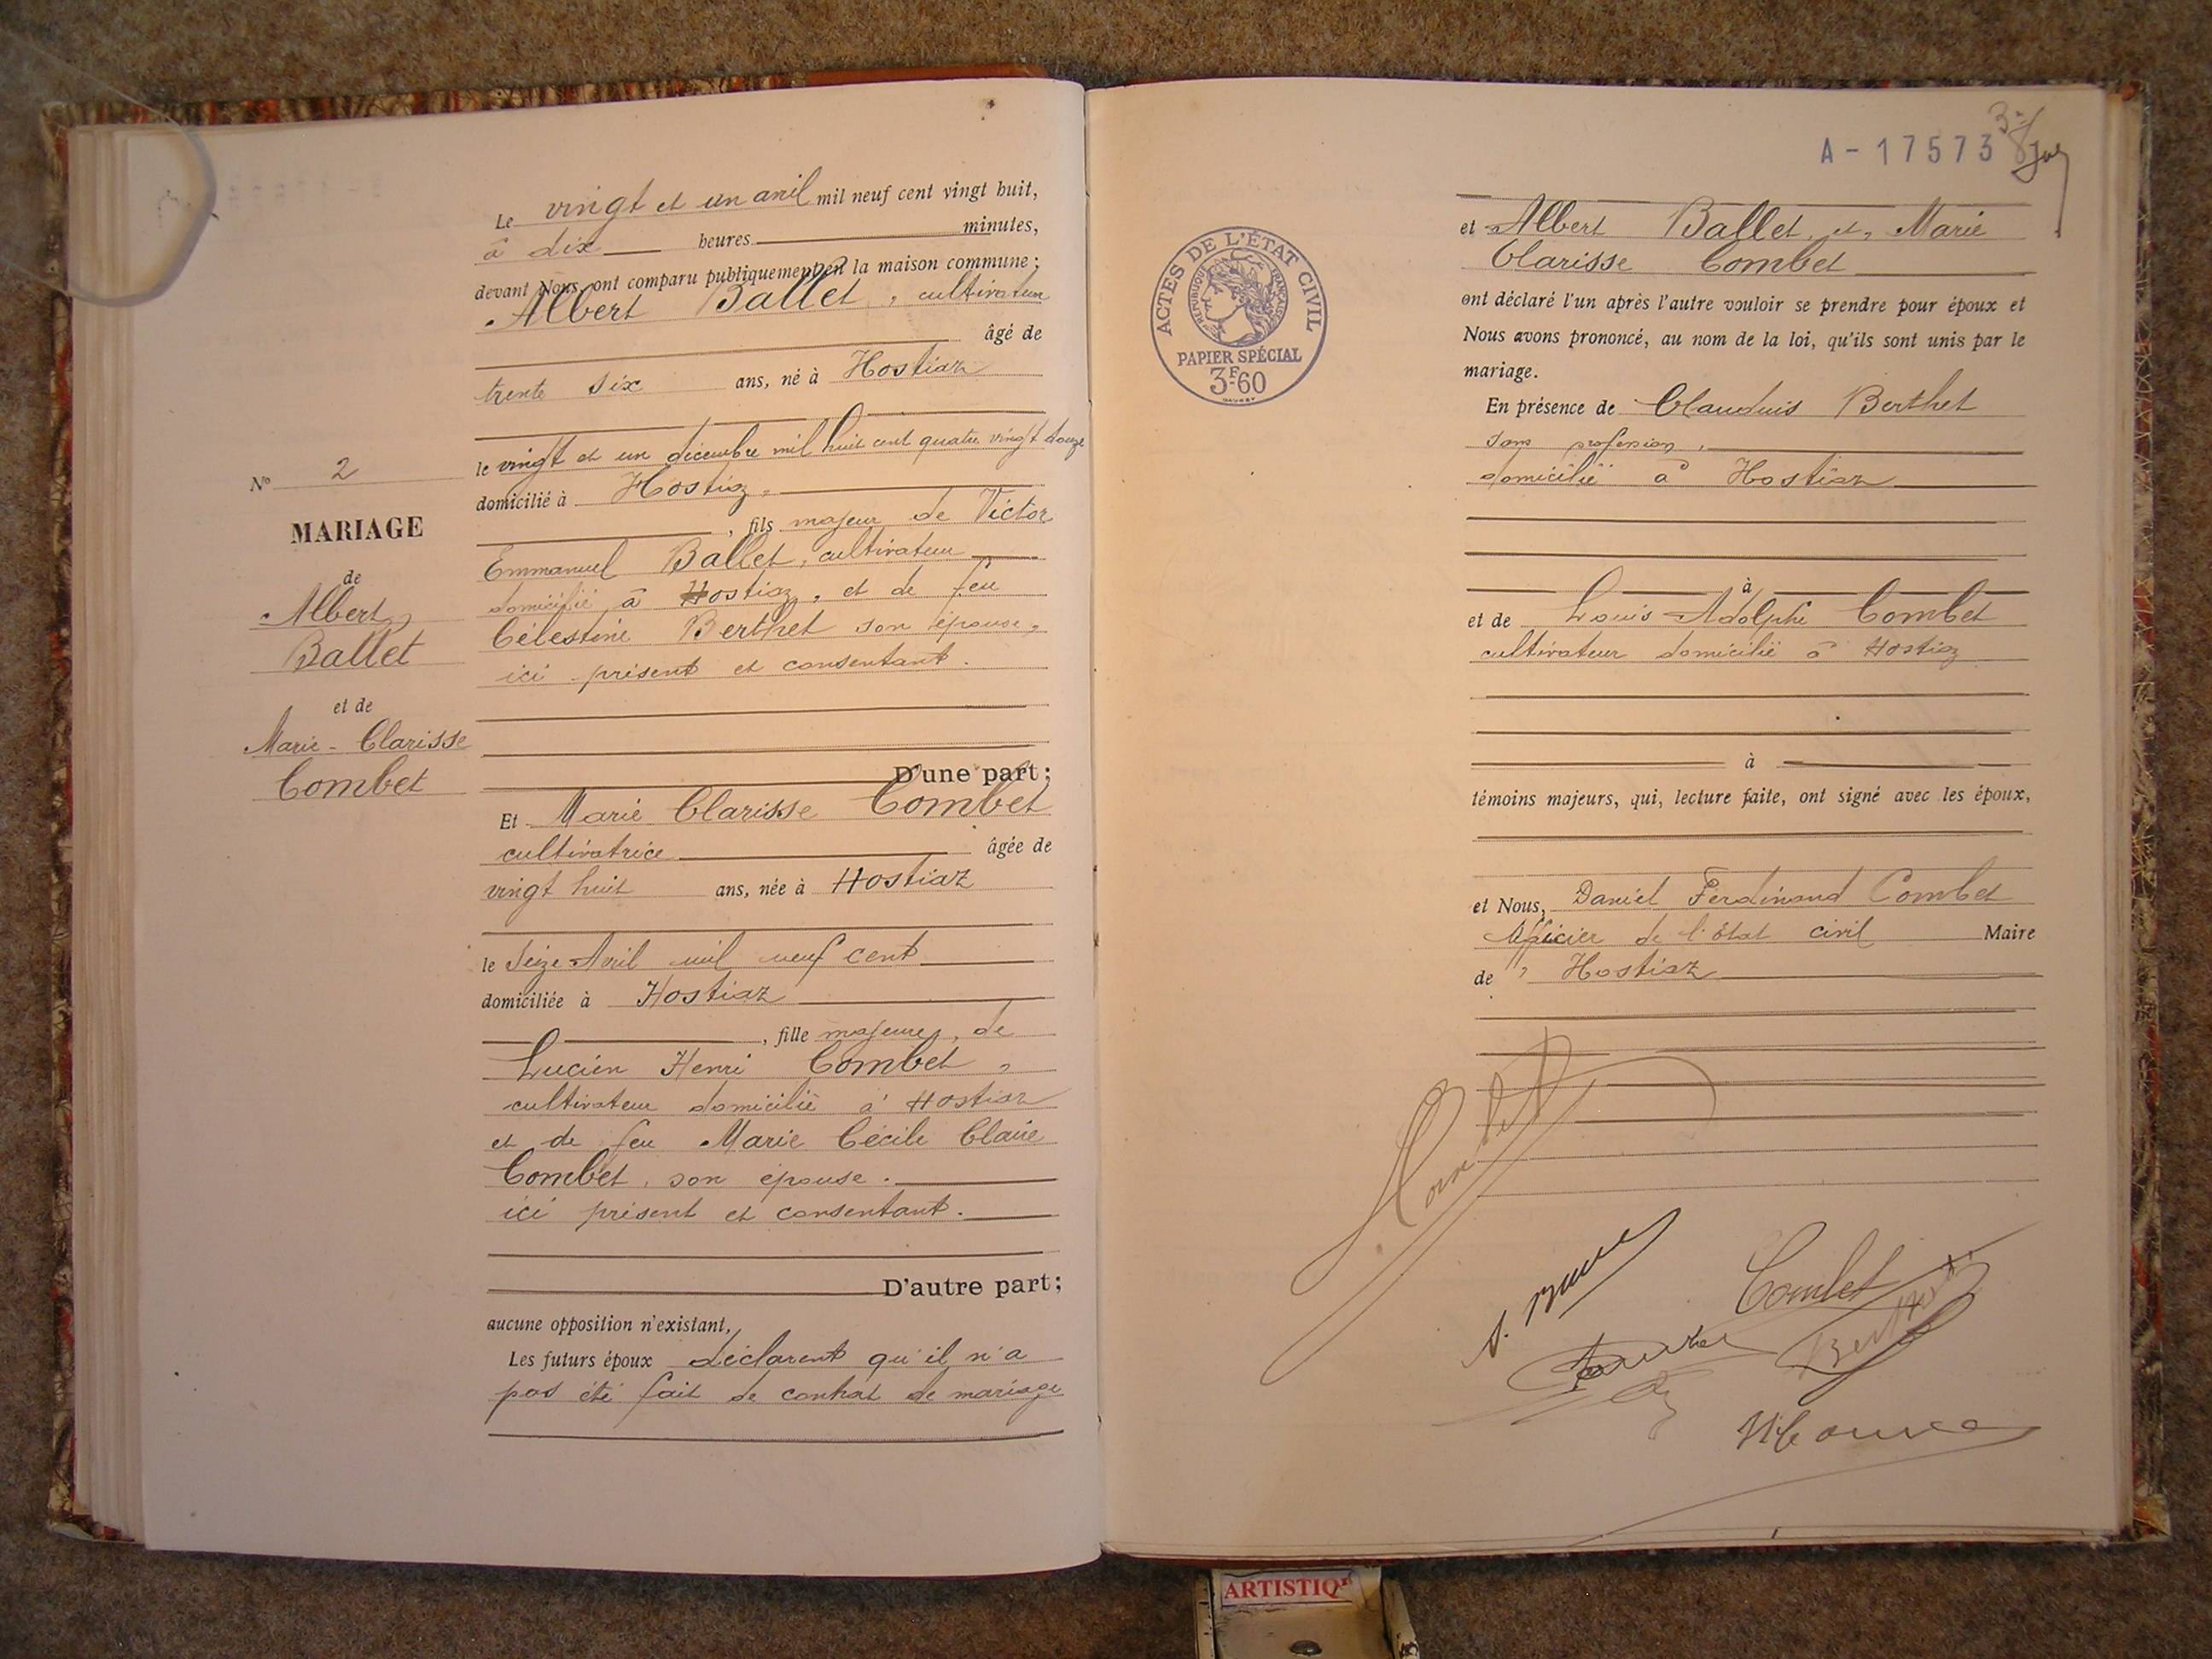 Le vingt et un avril mil neuf cent vingt huit,
à dix heures minutes,
devant Nous, ont comparu publiquement en la maison commune :
Albert Ballet, cultivateur
âgé de
trente six ans, né à Hostiaz
le vingt et un décembre mil huit cent quatre vingt douze
domicilié à Hostiaz,
, fils majeur de Victor
Emmanuel Ballet, cultivateur
domicilié à Hostiaz, et de feu
Célestine Berthet son épouse,
ici présent et consentant.
D'une part ;
Nº 2
MARIAGE
de
Albert
Ballet
et de
Marie-Clarisse
Combet
Et Marie Clarisse Combet
cultivatrice âgée de
vingt huit ans, née à Hostiaz
le Seize Avril mil neuf cent
domiciliée à Hostiaz
, fille majeure, de
Lucien Henri Combet,
cultivateur domicilié à Hostiaz
et de feu Marie Cécile Claire
Combet, son épouse.
ici présent et consentant.
D'autre part ;
aucune opposition n'existant,
Les futurs époux déclarent qu'il n'a
pas été fait de contrat de mariage
A-17573
ACTES DE L'ÉTAT CIVIL
RÉPUBLIQUE FRANÇAISE
PAPIER SPÉCIAL
3F60
et Albert Ballet, et, Marie
Clarisse Combet
ont déclaré l'un après l'autre vouloir se prendre pour époux et
Nous avons prononcé, au nom de la loi, qu'ils sont unis par le
mariage.
En présence de Claudius Berthet
sans profession,
domicilié à Hostiaz
à
et de Louis Adolphe Combet
cultivateur domicilié à Hostiaz
à
témoins majeurs, qui, lecture faite, ont signé avec les époux,
et Nous, Daniel Ferdinand Combet
Officier de l'État civil Maire
de Hostiaz
Combet
Combet
Berthet
ARTISTIQ